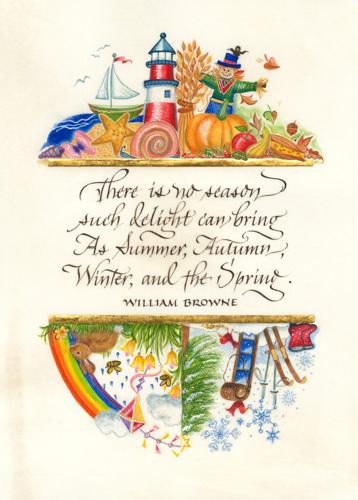 There is no season
such delight can bring
As Summer, Autumn,
Winter, and the Spring.
WILLIAM BROWNE